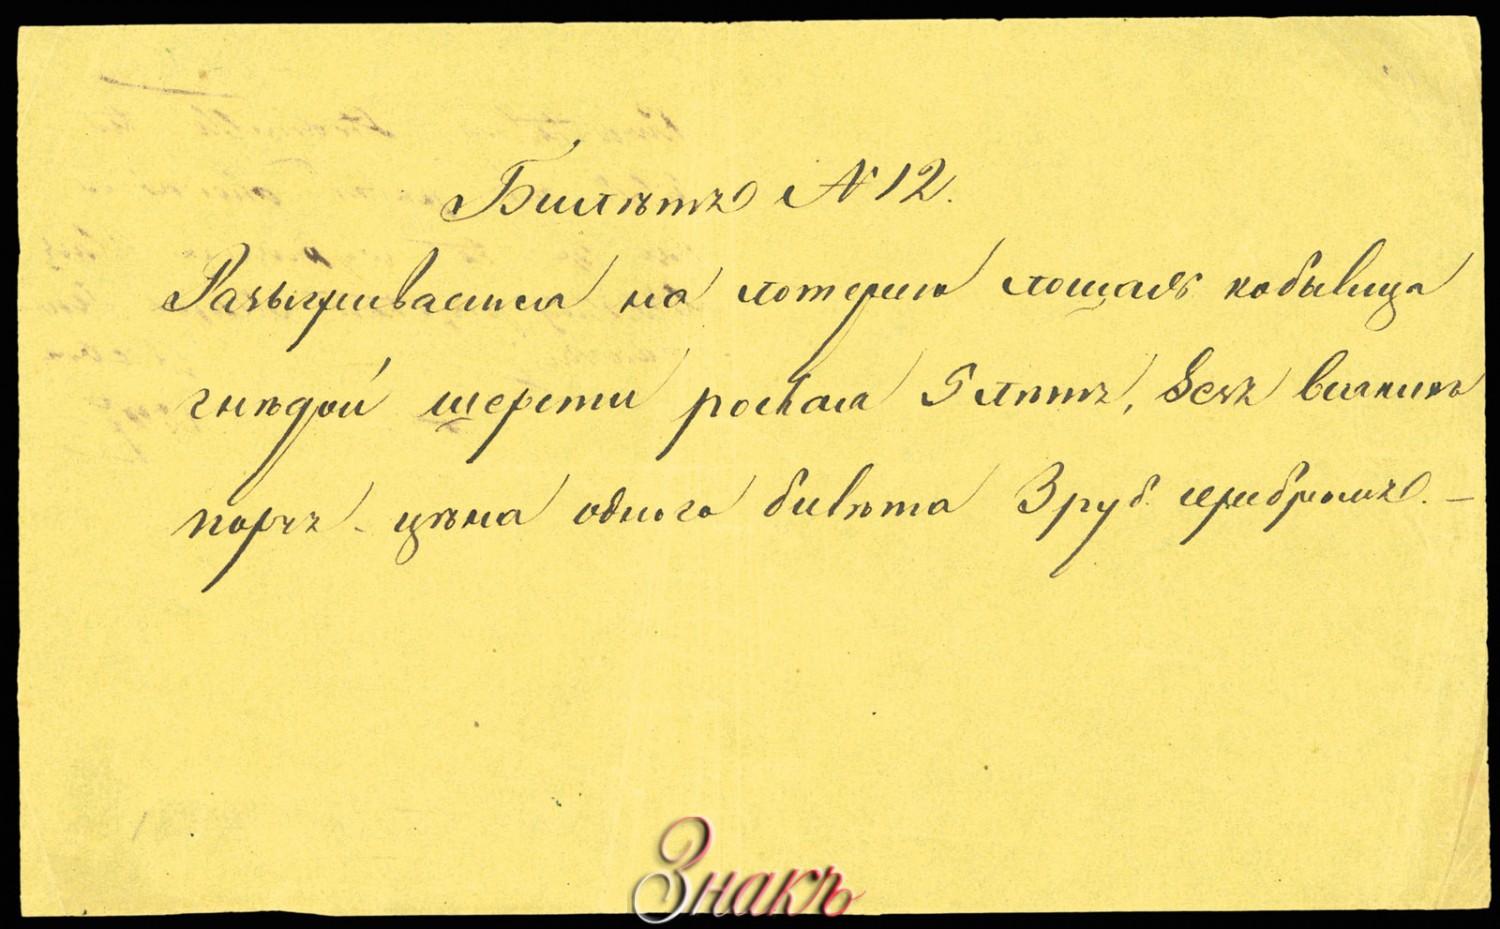 Билѣтъ № 12.
Разыгривается на лотерею лошадь кобылица
гнѣдой шерсти рослая 5 лѣтъ, безъ всякихъ
порчъ - цѣна одного билѣта 3 руб. серебромъ. —
Знакъ